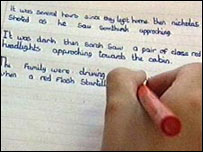 It was several hours since they left home then nicholas
Shoted as he Saw somthink approching
It was dark then Sarah Saw a pair of close red
headlights approching towards the cabin.
The Family were driving
when a red Flash Startled